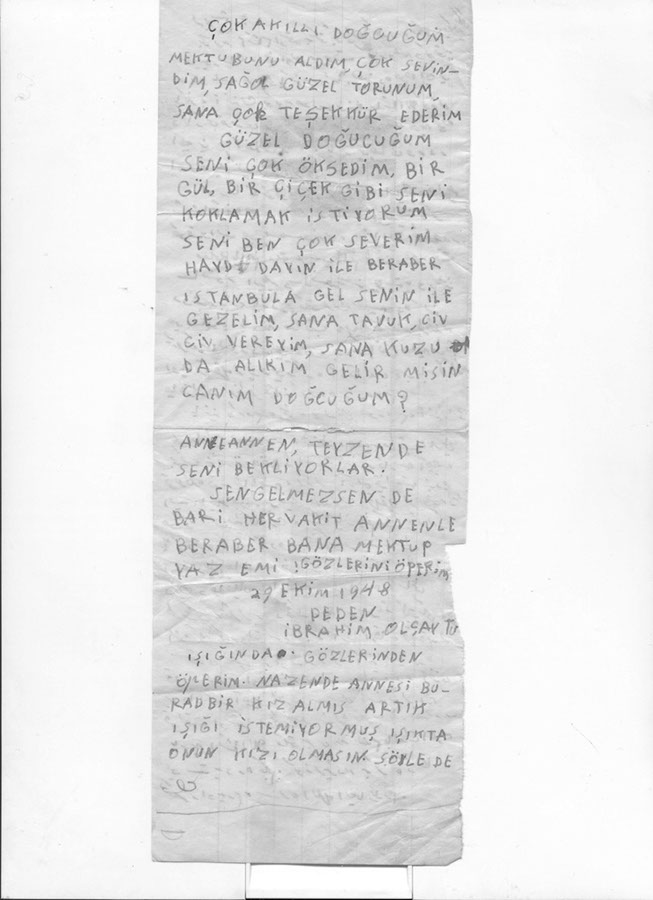 ÇOK AKILLI DOĞCUĞUM
MEKTUBUNU ALDIM, ÇOK SEVİN-
DİM, SAĞOL GÜZEL TORUNUM,
SANA ÇOK TEŞEKKÜR EDERİM
GÜZEL DOĞUCUĞUM
SENİ ÇOK ÖKSEDİM, BİR
GÜL, BİR ÇİÇEK GİBİ SENİ
KOKLAMAK İSTİYORUM
SENİ BEN ÇOK SEVERİM
HAYDİ DAYIN İLE BERABER
ISTANBULA GEL SENİN İLE
GEZELİM, SANA TAVUK, CİV
CİV VEREYİM, SANA KUZU
DA ALIRIM GELİR MİSİN
CANIM DOĞCUĞUM?
ANNEANNEN, TEYZENDE
SENİ BEKLİYORLAR.
SENGELMEZSEN DE
BARİ HERVAKİT ANNENLE
BERABER BANA MEKTUP
YAZ EMİ ! GÖZLERİNİ ÖPERİM
29 EKİM 1948
DEDEN
İBRAHİM OLÇAYTU
IŞIĞINDA. GÖZLERİNDEN
ÖPERİM. NAZENDE ANNESİ BU-
RADBİR KIZ ALMIŞ ARTIK
IŞIĞI İSTEMİYORMUŞ IŞIKTA
ONUN KIZI OLMASIN SÖYLE DE